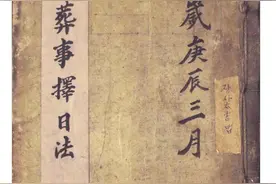 歲庚辰三月
葬事擇日法